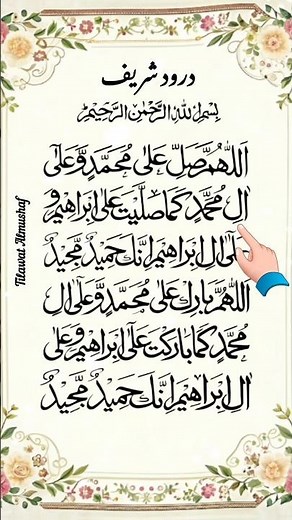 درود شریف
بِسْمِ اللهِ الرَّحْمٰنِ الرَّحِیْمِ
اَللّٰهُمَّ صَلِّ عَلٰى مُحَمَّدٍ وَّعَلٰٓى
اٰلِ مُحَمَّدٍ كَمَا صَلَّيْتَ عَلٰٓى اِبْرَاهِيْمَ وَ
لٰٓى اٰلِ اِبْرَاهِيْمَ اِنَّكَ حَمِيْدٌ مَّجِيْدٌ
اَللّٰهُمَّ بَارِكْ عَلٰى مُحَمَّدٍ وَّعَلٰٓى اٰلِ
مُحَمَّدٍ كَمَا بَارَكْتَ عَلٰٓى اِبْرَاهِيْمَ وَعَلٰٓى
اٰلِ اِبْرَاهِيْمَ اِنَّكَ حَمِيْدٌ مَّجِيْدٌ
Tilawat Almushaf